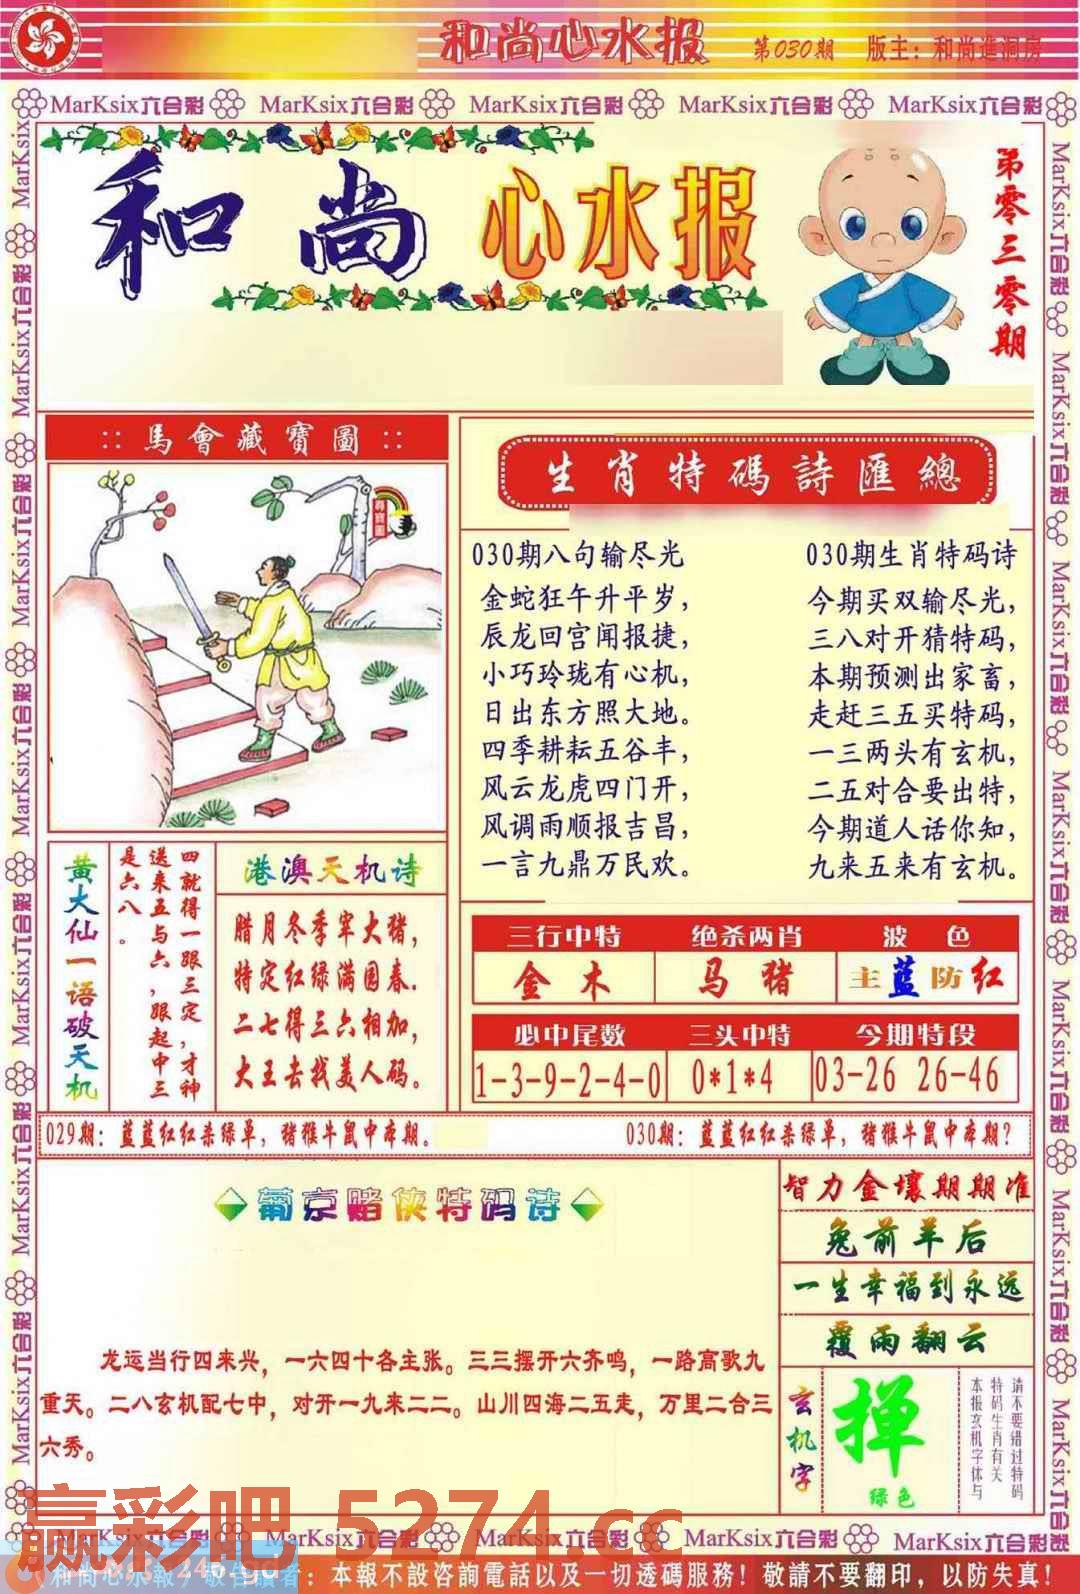 和尚心水报 第030期 版主：和尚進洞房
MarKsix六合彩 MarKsix六合彩 MarKsix六合彩 MarKsix六合彩 MarKsix六合彩
和尚 心水报
第零三零期
馬會藏寶圖
生肖特碼詩匯總
030期八句输尽光
金蛇狂午升平岁，
辰龙回宫闻报捷，
小巧玲珑有心机，
日出东方照大地。
四季耕耘五谷丰，
风云龙虎四门开，
风调雨顺报吉昌，
一言九鼎万民欢。
030期生肖特码诗
今期买双输尽光，
三八对开猜特码，
本期预测出家畜，
走赶三五买特码，
一三两头有玄机，
二五对合要出特，
今期道人话你知，
九来五来有玄机。
黄大仙一语破天机
四就得一跟三定，才神
送来五与六，跟起中三
是六八。
港澳天机诗
腊月冬季宰大猪，
特定红绿满园春.
二七得三六相加，
大王去找美人码。
三行中特 绝杀两肖 波色
金木 马猪 主蓝防红
必中尾数 三头中特 今期特段
1-3-9-2-4-0 0*1*4 03-26 26-46
029期：蓝蓝红红杀绿单，猪猴牛鼠中本期。
030期：蓝蓝红红杀绿单，猪猴牛鼠中本期？
葡京赌侠特码诗
龙运当行四来兴，一六四十各主张。三三摆开六齐鸣，一路高歌九
重天。二八玄机配七中，对开一九来二二。山川四海二五走，万里二合三
六秀。
智力金壤期期准
兔前羊后
一生幸福到永远
覆雨翻云
玄机字
禅
绿色
请不要错过特码
特码生肖有关
本报玄机字体与
赢彩吧 5274.cc
MarKsix六合彩 MarKsix六合彩 MarKsix六合彩 MarKsix六合彩 MarKsix六合彩
246.gd
和尚心水報 敬告讀者：本報不設咨詢電話以及一切透碼服務！敬請不要翻印，以防失真！